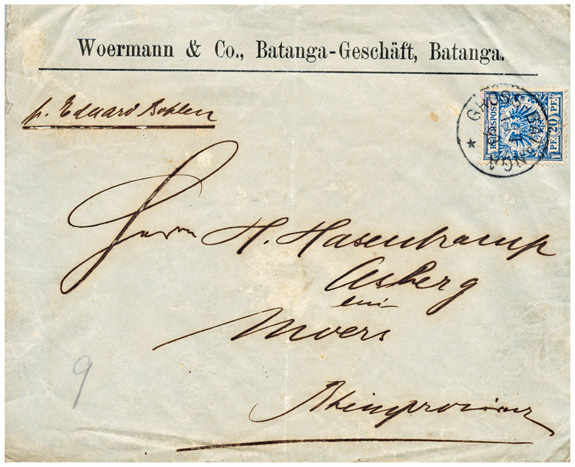 Woermann & Co., Batanga-Geschäft, Batanga.
p. Eduard Bohlen
GROSS-BATANGA
REICHSPOST
20 PF
Herrn H. Hasenkamp
Asberg
bei
Moers
Rheinprovinz
9